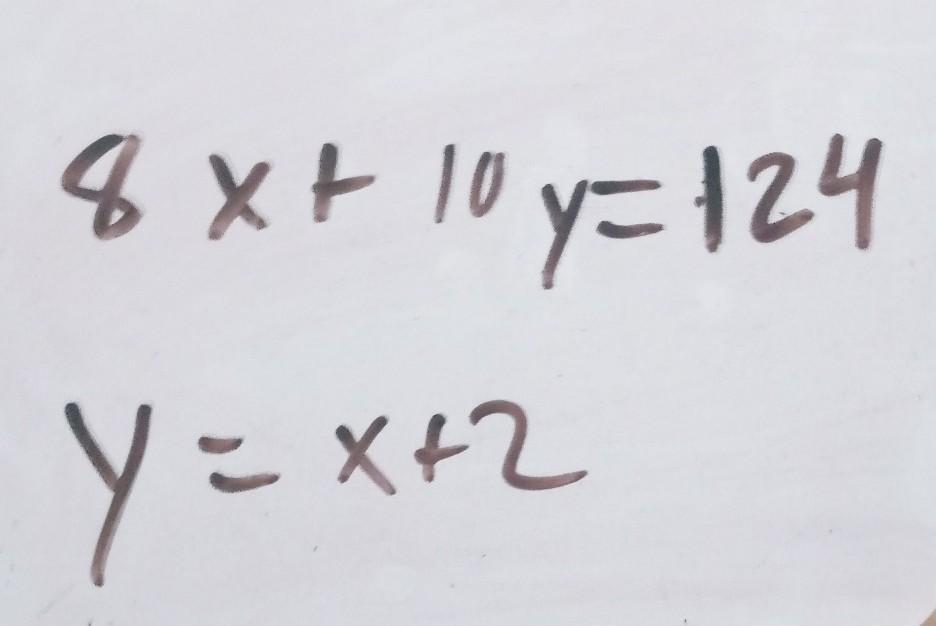 8x + 10y = 124
y = x + 2